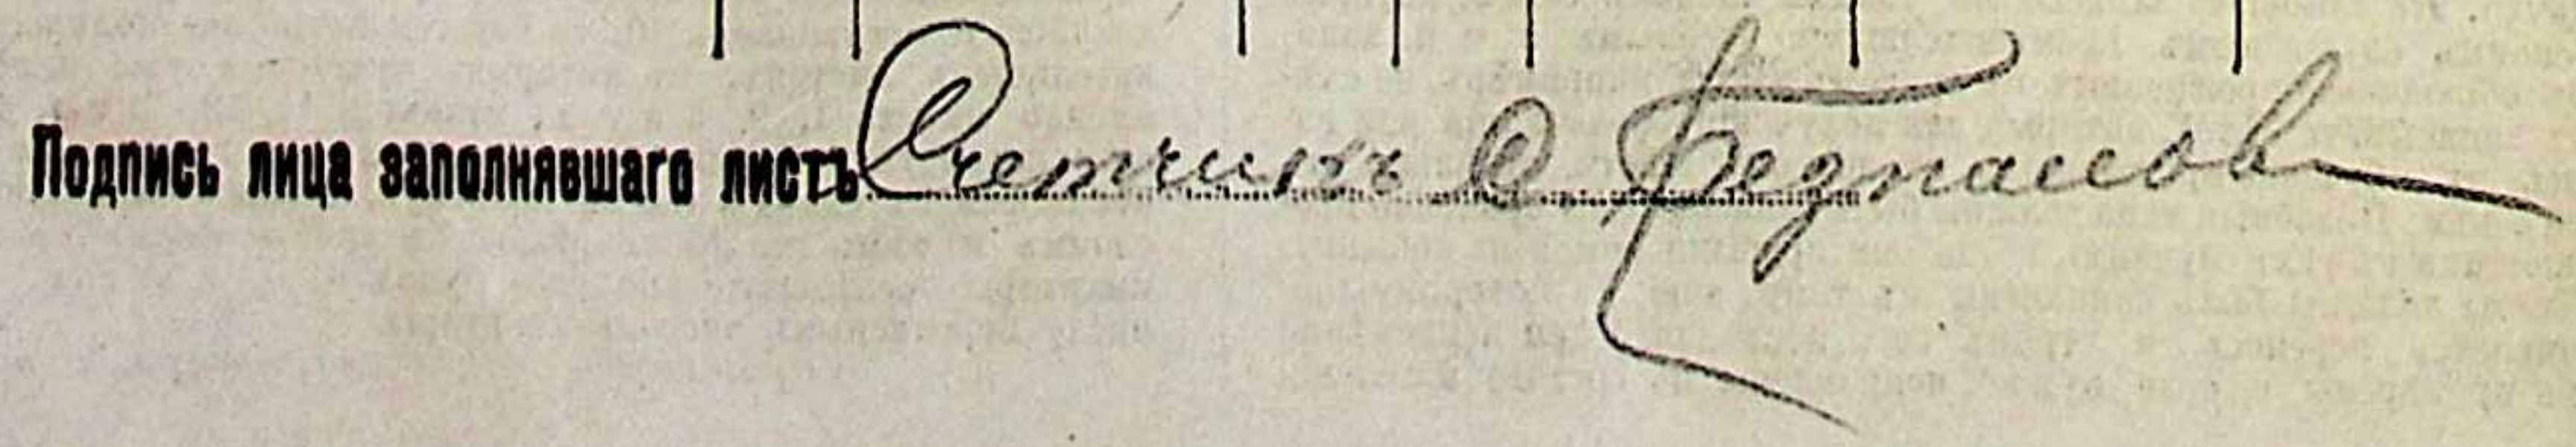 Подпись лица заполнявшаго листъ Счетчикъ Ѳ.